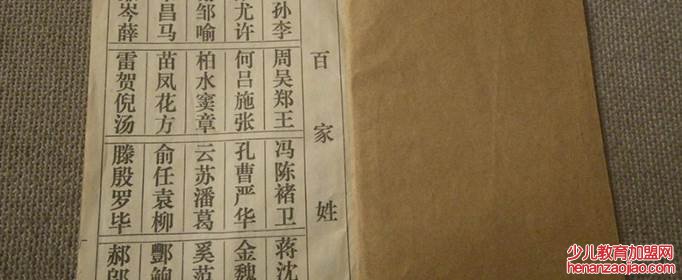 百家姓
孙李 周吴郑王 冯陈褚卫 蒋沈
尤许 何吕施张 孔曹严华 金魏
邹喻 柏水窦章 云苏潘葛 奚范
昌马 苗凤花方 俞任袁柳 酆鲍
岑薛 雷贺倪汤 滕殷罗毕 郝邬
少儿教育加盟网
henanjiaoyu.com